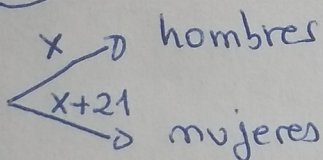 x hombres
x+21
mujeres